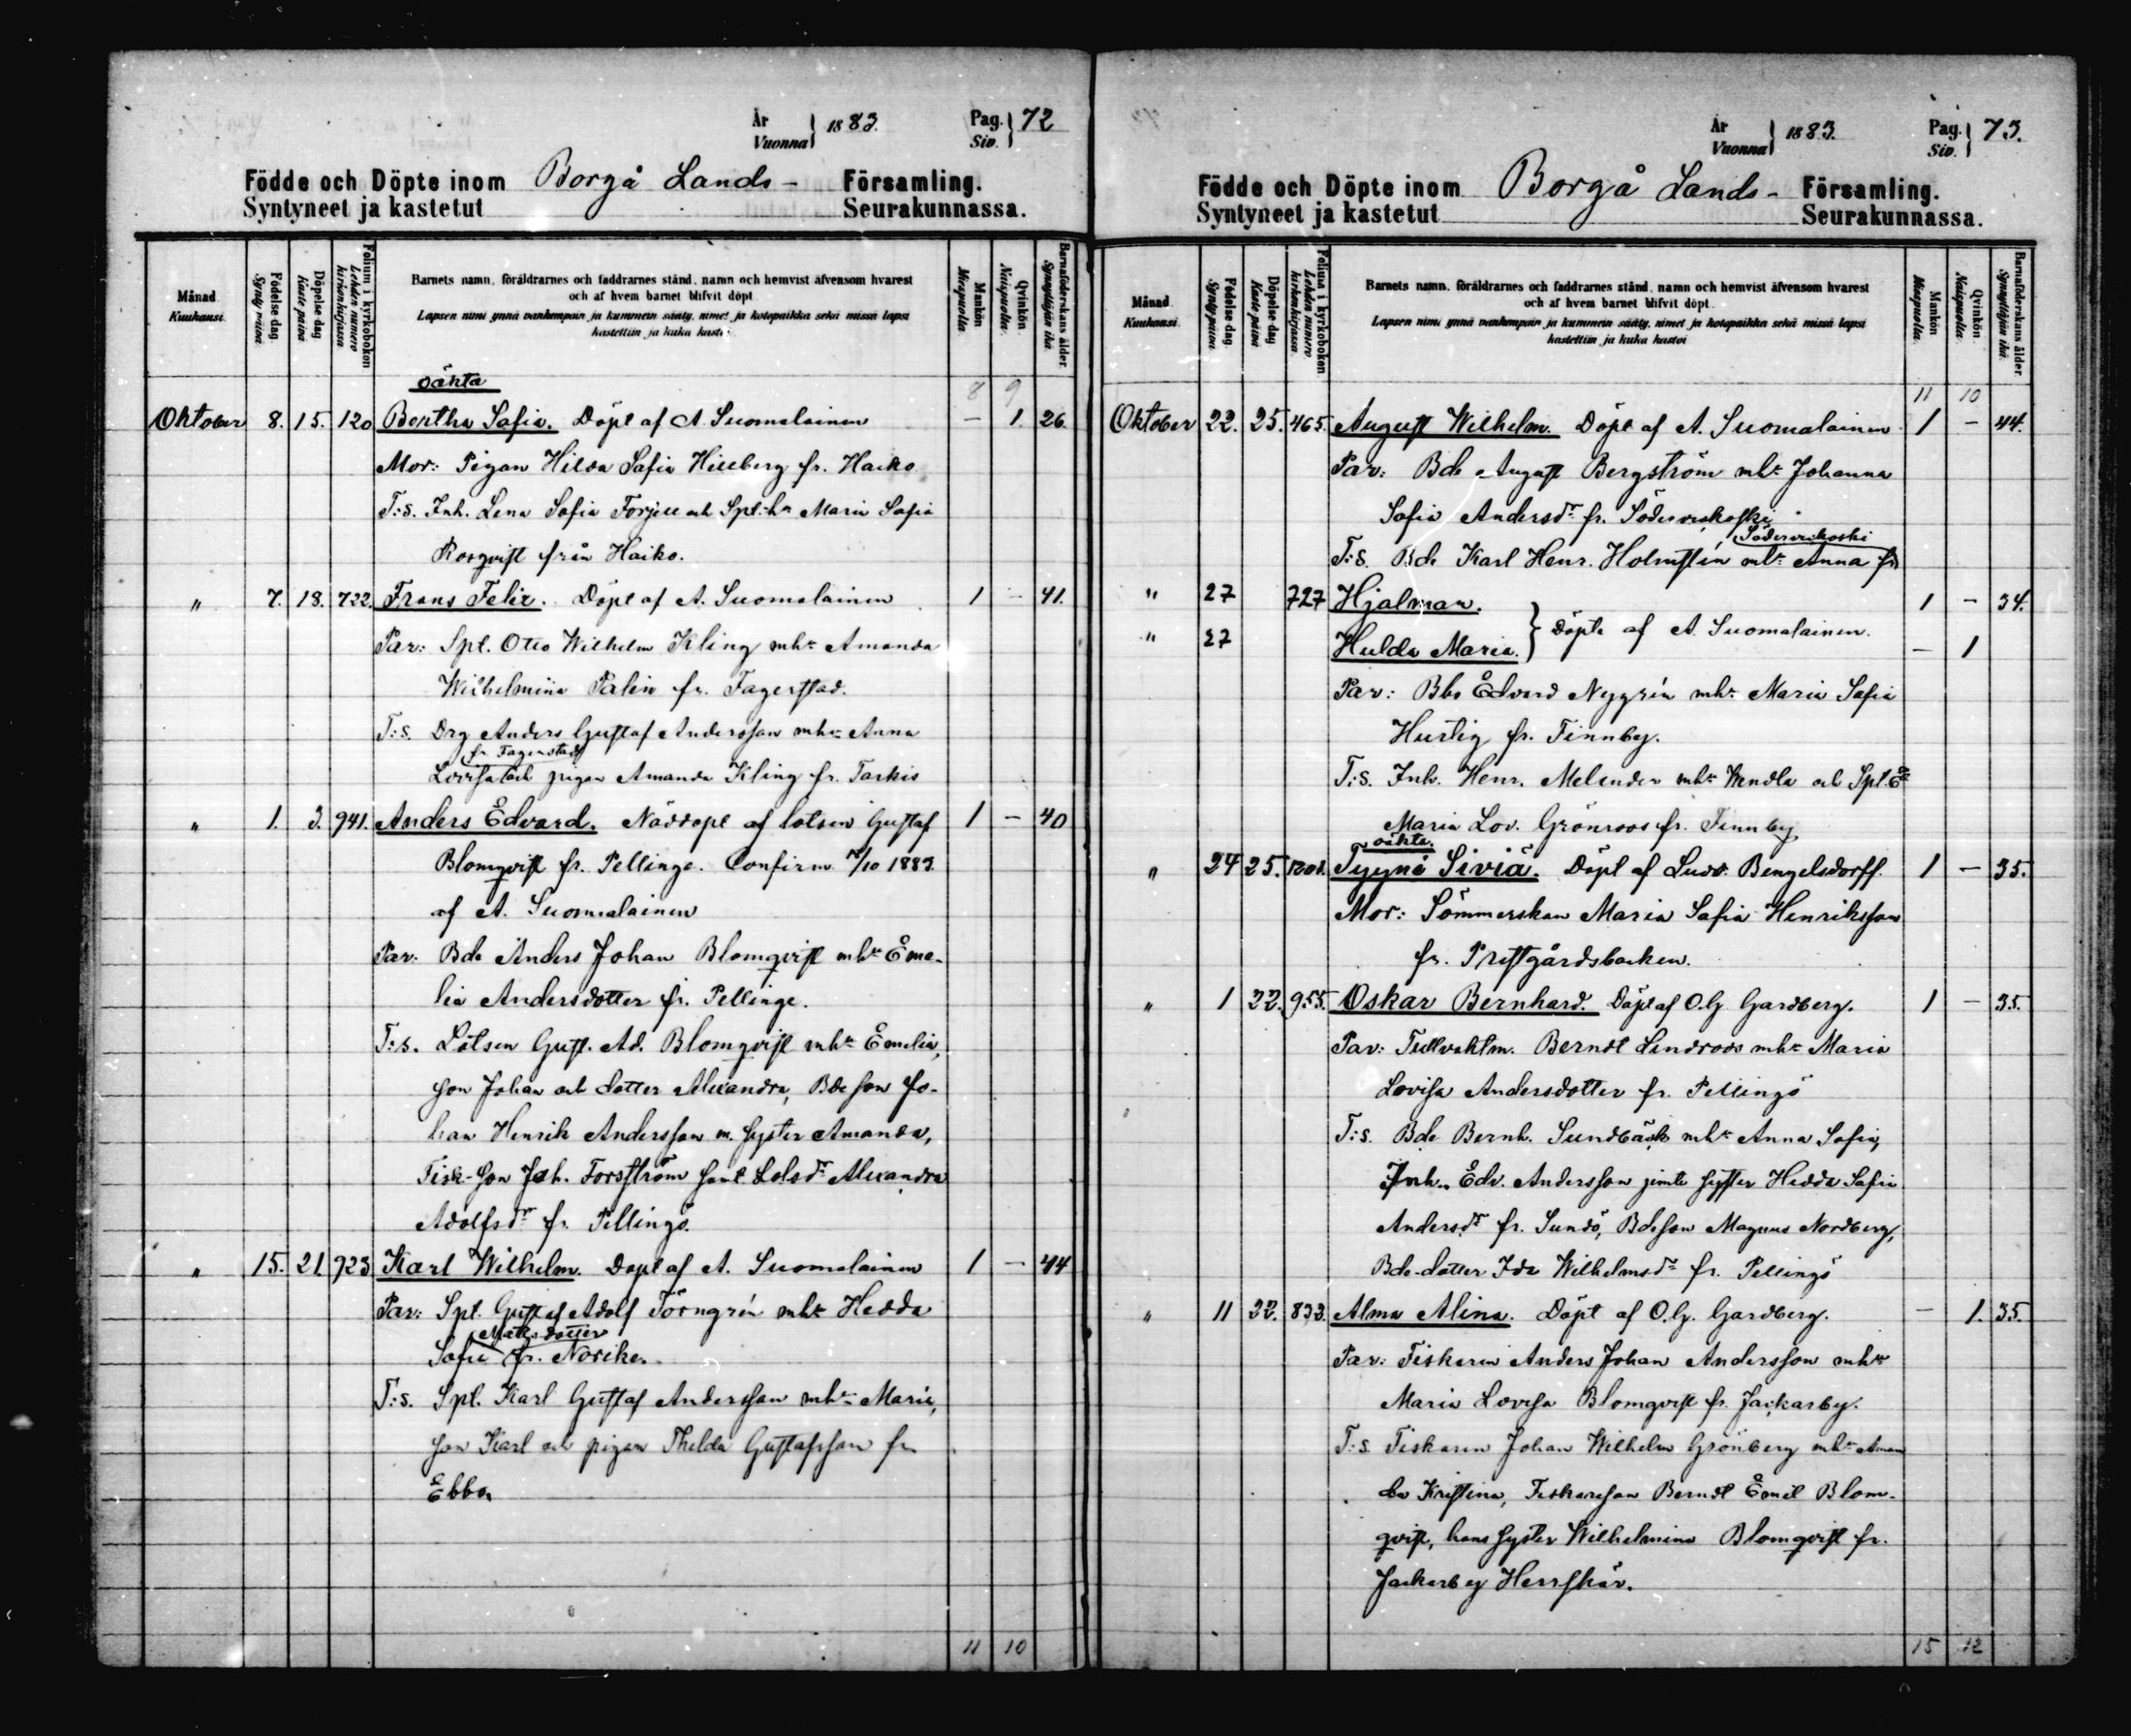 År
Vuonna } 1883.
Pag.
Siv. } 72
Födde och Döpte inom Borgå Lands- Församling.
Syntyneet ja kastetut Seurakunnassa.
Månad.
Kuukausi.
Födelse-dag.
Synty-päivä.
Döpelse-dag.
Kaste-päivä.
Folium i kyrkoboken.
Lehden numero kirkonkirjassa.
Barnets namn, föräldrarnes och faddrarnes stånd, namn och hemvist äfvensom hvarest
och af hvem barnet blifvit döpt.
Lapsen nimi ynnä vanhempain ja kummein sääty, nimet ja kotopaikka sekä missä lapsi
kastettiin ja kuka kastoi
Mankön.
Miespuolia.
Qvinkön.
Naispuolia.
Barnaföderskans ålder.
Synnyttäjän ikä.
8 9
oäkta
Oktober 8. 15. 120 Bertha Sofia. Döpt af A. Suomalainen — 1. 26.
Mor: Pigan Hilda Sofia Hillberg fr. Haiko
T:s. Inh. Lena Sofia Forsell och Spt.h:n Maria Sofia
Rosqvist från Haiko.
" 7. 18. 722. Frans Felix. Döpt af A. Suomalainen 1 — 41.
Par: Spt. Otto Wilhelm Kling mhu Amanda
Wilhelmina Palin fr. Fagerstad.
T:s. Drg Anders Gustaf Andersson mhu Anna
fr. Fagerstad
Lovisa och pigan Amanda Kling fr. Tarkis
" 1. 3. 941. Anders Edvard. Nöddöpt af lotsen Gustaf 1 — 40
Blomqvist fr. Pellinge. Confirm. /10 1883.
af A. Suomalainen
Par: Bde Anders Johan Blomqvist mhu Eme-
lia Andersdotter fr. Pellinge.
T:s. Lotsen Gust. Ad. Blomqvist mhu Emelia,
son Johan och dotter Alexandra, Bdeson Jo-
han Henrik Andersson m. syster Amanda,
Fisk-son Joh. Forsström samt Lotsdr Alexandra
Adolfsdr fr. Pellinge.
" 15. 21. 923 Karl Wilhelm. Döpt af A. Suomalainen 1 — 44
Par: Spt. Gustaf Adolf Törngrén mhu Hedda
Mattsdotter
Sofia fr. Norike.
T:s. Spt. Karl Gustaf Andersson mhu Maria,
son Karl och pigan Thilda Gustafsson fr.
Ebbo.
11 10
År
Vuonna } 1883.
Pag.
Siv. } 73.
Födde och Döpte inom Borgå Lands- Församling.
Syntyneet ja kastetut Seurakunnassa.
Månad.
Kuukausi.
Födelse-dag.
Synty-päivä.
Döpelse-dag.
Kaste-päivä.
Folium i kyrkoboken.
Lehden numero kirkonkirjassa.
Barnets namn, föräldrarnes och faddrarnes stånd, namn och hemvist äfvensom hvarest
och af hvem barnet blifvit döpt.
Lapsen nimi ynnä vanhempain ja kummein sääty, nimet ja kotopaikka sekä missä lapsi
kastettiin ja kuka kastoi
Mankön.
Miespuolia.
Qvinkön.
Naispuolia.
Barnaföderskans ålder.
Synnyttäjän ikä.
11 10
Oktober 22. 25. 465. August Wilhelm. Döpt af A. Suomalainen 1 — 44.
Par: Bde August Bergström mhu Johanna
Sofia Andersdr fr. Söderveckoski.
Söderveckoski
T:s. Bde Karl Henr. Holmstén mhu Anna fr
" 27 727 Hjalmar. 1 — 34.
" 27 Hulda Maria. } Döpte af A. Suomalainen. — 1
Par: Bbo Edvard Nygrén mhu Maria Sofia
Hurtig fr. Finnby.
T:s. Inh. Henr. Melander mhu Wendla och Spt.
Maria Lov. Grönroos fr. Finnby
oäkta.
" 24 25. 1208. Tyyne Siviä. Döpt af Ludv. Bengelsdorff. 1 — 35.
Mor: Sömmerskan Maria Sofia Henriksson
fr. Prestgårdsbacken.
" 1 22. 955. Oskar Bernhard. Döpt af O.G. Gardberg. 1 — 35.
Par: Tullvaktm. Berndt Lindroos mhu Maria
Lovisa Andersdotter fr. Pellinge
T:s. Bde Bernh. Sundbäck mhu Anna Sofia,
Inh. Edv. Andersson jemte syster Hedda Sofia
Andersdr fr. Sundö, Bdeson Magnus Nordberg,
Bde-dotter Ida Wilhelmsdr fr. Pellinge
" 11 22. 833. Alma Alina. Döpt af O.G. Gardberg. — 1. 35.
Par: Fiskaren Anders Johan Andersson mhu
Maria Lovisa Blomqvist fr. Jackarby.
T:s. Fiskaren Johan Wilhelm Grönberg mhu Aman
da Kristina, Fiskareson Berndt Emil Blom-
qvist, hans syster Wilhelmina Blomqvist fr.
Jackarby Herrskär.
15 12